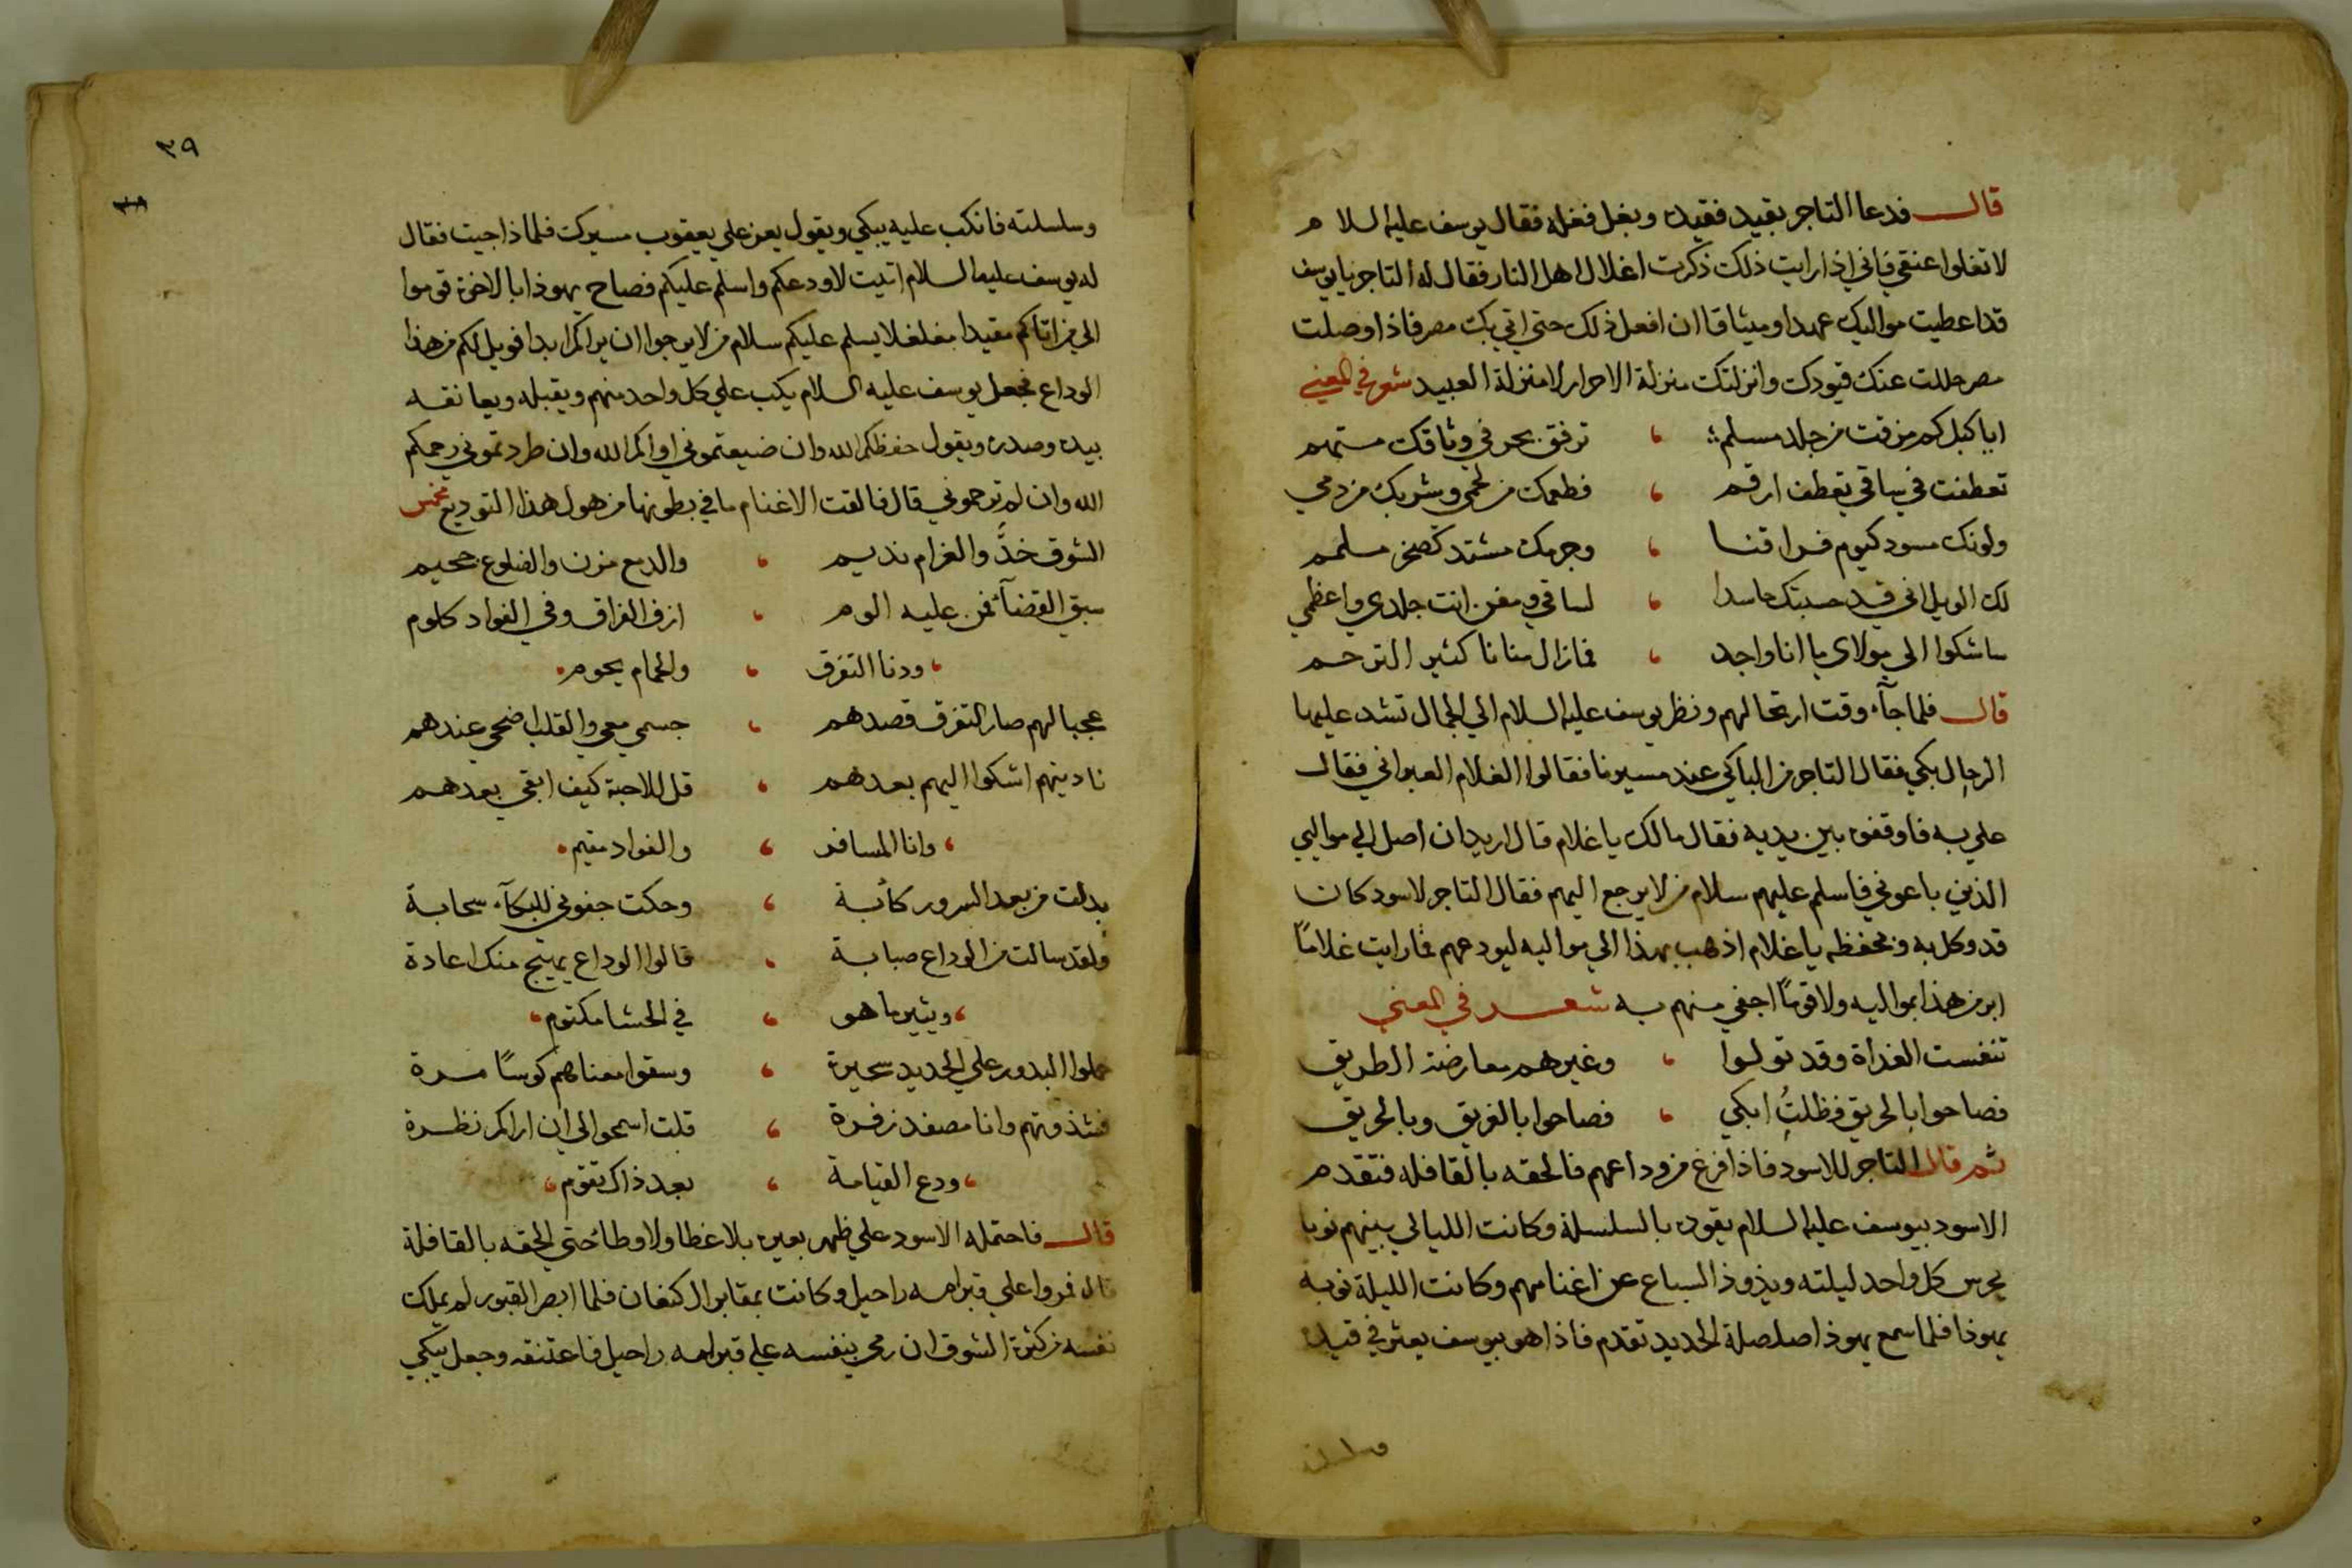 قال فدعا التاجر بقيد فقيده وبغل فغله فقال يوسف عليه السلام
لا تغلوا عنقي فاني اذا رايت ذلك ذكرت اغلال اهل النار فقال له التاجر يا يوسف
قد اعطيت مواليك عهدا وميثاقا ان افعل ذلك حتى اتي بك مصر فاذا وصلت
مصر حللت عنك قيودك وانزلتك منزلة الاحرار لا منزلة العبيد شعر في المعني
ايا كبل كم مزقت من جلد مسلم ، ترفق بحر في وثاقك مستهم
تعطفت في ساقي تعطف ارقم ، فطعمك من لحمي وشربك من دمي
ولونك مسود كيوم فراقنا ، وجرمك مشتد كصخر ململم
لك الويل اني قد حسبتك حاسدا ، لساقي انت جلدي واعظمي
ساشكوا الي مولاي ما انا واجد ، فما زال منانا كثير الترحم
قال فلما جآء وقت ارتحالهم ونظر يوسف عليه السلام الي الجمال تشد عليها
الرحال بكي فقال التاجر من الباكي عند مسيرنا فقالوا الغلام العبراني فقال
علي به فاوقفوه بين يديه فقال مالك يا غلام قال اريد ان اصل الي موالي
الذين باعوني فاسلم عليهم سلام من لا يرجع اليهم فقال التاجر لاسود كان
قد وكل به وبحفظه يا غلام اذهب بهذا الي مواليه ليودعهم فما رايت غلاماً
ابر من هذا بمواليه ولا قوماً اجفي منهم به شعر في المعني
تنفست الغداة وقد تولوا ، وغيرهم معارضة الطريق
فصاحوا بالحريق فظلتُ ابكي ، فصاحوا بالغريق وبالحريق
ثم قال التاجر للاسود فاذا فرغ من وداعهم فالحقه بالقافله فتقدم
الاسود بيوسف عليه السلام يقوده بالسلسلة وكانت الليالي بينهم نوبا
يحرس كل واحد ليلته ويذوذ السباع عن اغنامهم وكانت الليلة نوبة
يهوذا فلما سمع يهوذا صلصلة الحديد تقدم فاذا هو بيوسف يعثر في قيده
وسلسلته
٣٩
٣٨
وسلسلته فانكب عليه يبكي ويقول يعز علي يعقوب مسيرك فلماذا جيت فقال
له يوسف عليه السلام اتيت لاودعكم واسلم عليكم فصاح يهوذا بالاخوة قوموا
الي من اتاكم مقيدا مغلغلا يسلم عليكم سلام من لا يرجوا ان يراكم ابدا فويل لكم من هذا
الوداع فجعل يوسف عليه السلام يكب علي كل واحد منهم ويقبله ويعانقه
بيده وصدره ويقول حفظكم الله وان ضيعتموني اواكم الله وان طردتموني رحمكم
الله وان لم ترحموني قال فالقت الاغنام ما في بطونها من هول هذا التوديع مخمس
الشوق خدٌّ والغرام نديم ، والدمع مزن والضلوع جحيم
سبق القضآء فمن عليه الوم ، ازف الفراق وفي الفواد كلوم
، ودنا التفرق ، والحمام يحوم
عجبا لهم صار التفرق قصدهم ، جسمي معي والقلب اضحي عندهم
ناديتهم اشكوا اليهم بعدهم ، قل للاحبة كيف ابقي بعدهم
، وانا المسافر ، والفواد مقيم
بدلت من بعد السرور كآبة ، وحكت جفوني للبكآء سحابة
ولقد سالت من الوداع صبابة ، قالوا الوداع يهيج منك اعادة
، ويثير ما هو ، في الحشا مكتوم ،
حملوا البدور علي الحديد سحيرة ، وسقوا معناهم كوساً مرة
وانا مصفد زفرة ، قلت اسمحوا لي ان اراكم نظرة
، ودع القيامة ، بعد ذاك تقوم ،
قال فاحتمله الاسود علي ظهر بعيره بلا غطا ولا وطا حتي الحقه بالقافلة
قال فمروا علي قبر امه راحيل وكانت بمقابر ال كنعان فلما ابصر القبور لم يملك
نفسه من كثرة الشوق ان رمي بنفسه علي قبر امه راحيل فاعتنقه وجعل يبكي